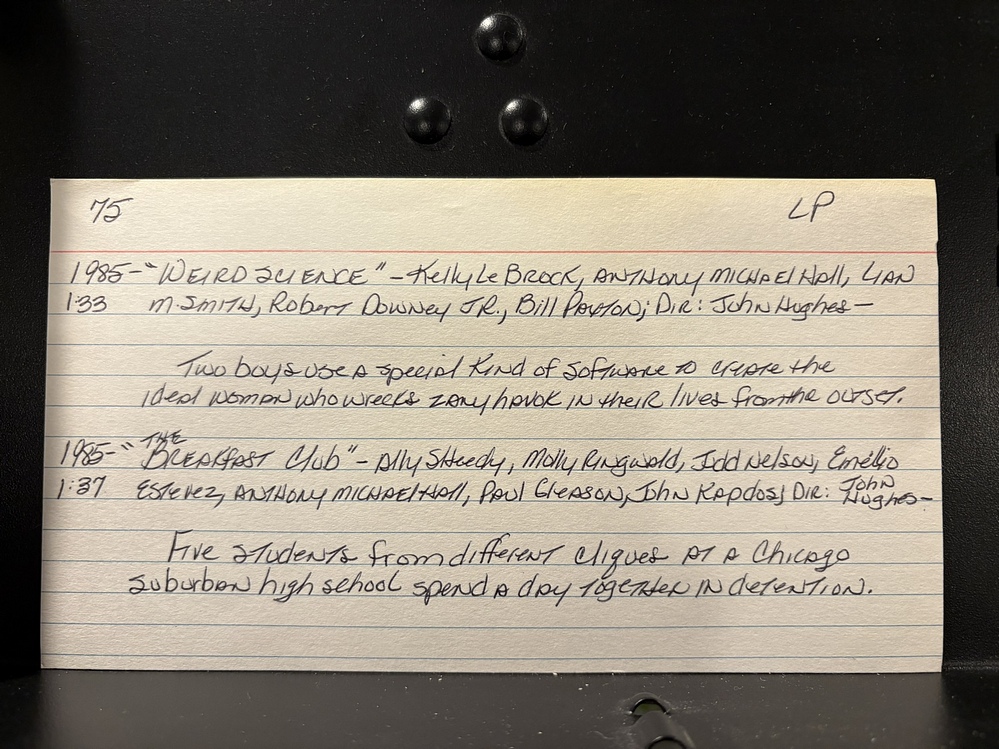 75 LP
1985-"WEIRD SCIENCE" - Kelly Le Brock, ANTHONY MICHAEL Hall, LIAN
1:33 M. SMITH, Robert Downey JR., Bill Paxton; DIR: John Hughes-
Two boys use a special kind of software to create the
ideal woman who wrecks zany havok in their lives from the outset.
THE
1985-"BREAKFAST Club" - Ally Sheedy, Molly Ringwald, Judd Nelson, Emelio
1:37 ESTEVEZ, ANTHONY MICHAEL HAll, PAUl GleASON, John Kapdos; DIR: John
Hughes-
Five students from different cliques AT A Chicago
suburban high school spend a day together in detention.